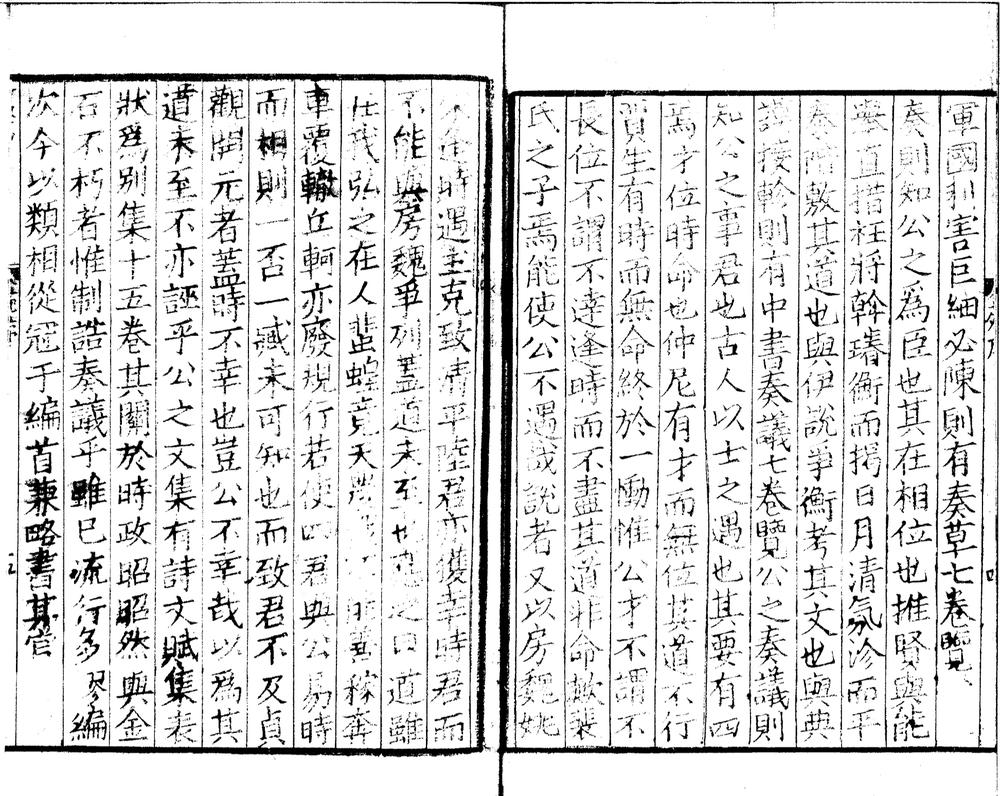 軍國利害巨細必陳則有奏草七卷覽公之
奏則知公之爲臣也其在相位也推賢與能
舉直措枉將斡璿衡而揭日月清氛沴而平
泰階敷其道也與伊說爭衡考其文也與典
謨接軫則有中書奏議七卷覽公之奏議則
知公之事君也古人以士之遇也其要有四
焉才位時命也仲尼有才而無位其道不行
賈生有時而無命終於一慟惟公才不謂不
長位不謂不達逢時而不盡其道非命歟裴
氏之子焉能使公不遇哉說者又以房魏姚
宋逢時遇主克致清平陸君亦獲幸時君而
不能與房魏爭列蓋道未至也應之曰道雖
在我弘之在人蜚蝗竟天農稷不能善稼奔
車覆轍丘軻亦廢規行若使四君與公易時
而相則一否一臧未可知也而致君不及貞
觀開元者蓋時不幸也豈公不幸哉以爲其
道未至不亦誣乎公之文集有詩文賦集表
狀爲别集十五卷其關於時政昭昭然與金
石不朽者惟制誥奏議乎雖已流行多謬編
次今以類相從冠于編首兼略書其官